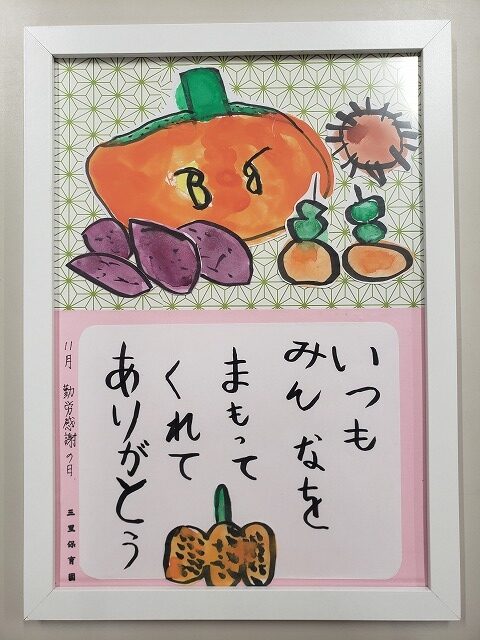 いつも
みんなを
まもって
くれて
ありがとう
11月 勤労感謝の日
三里保育園